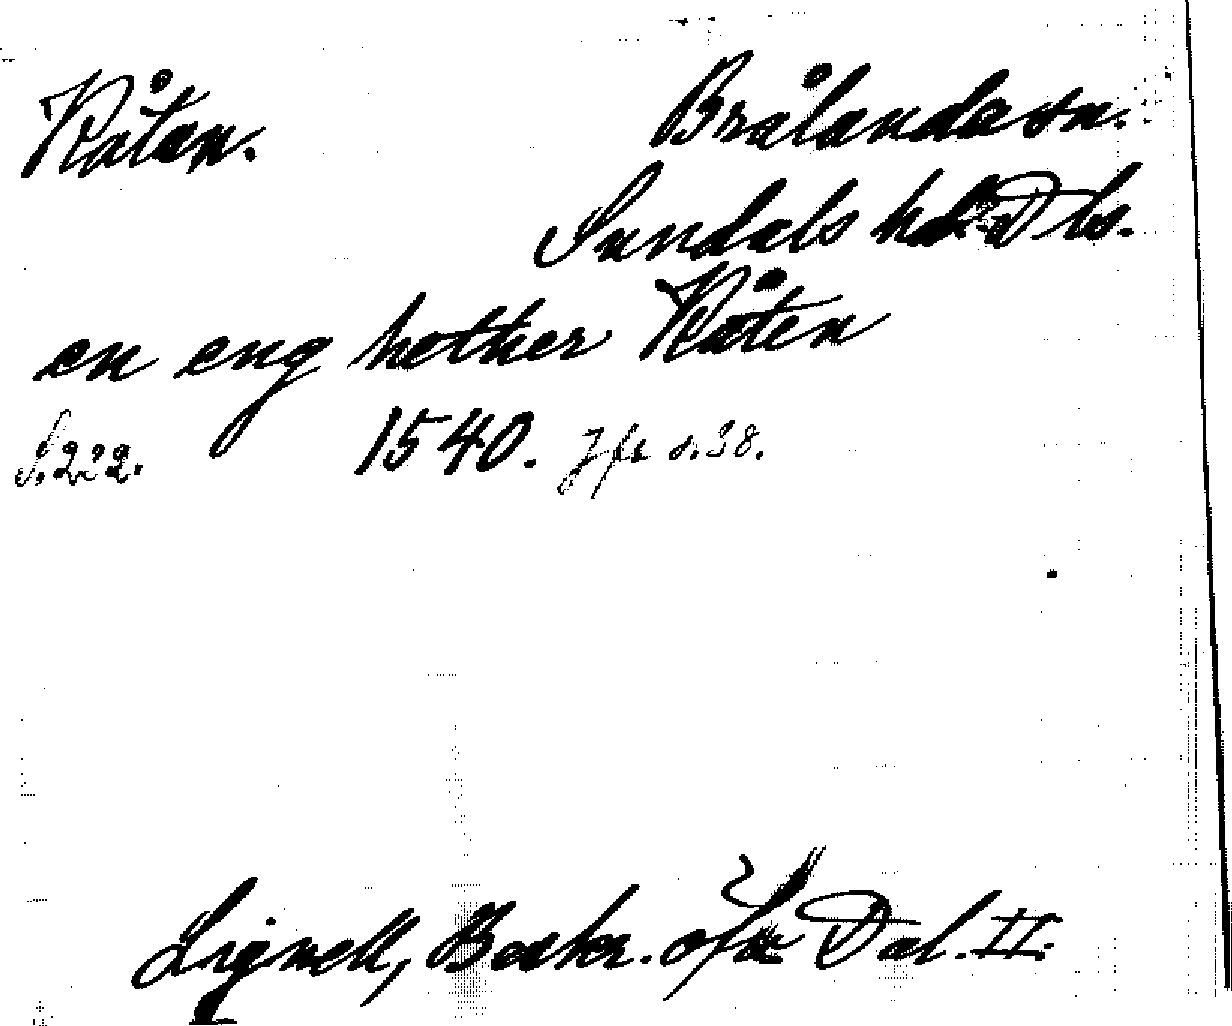 Råtan. Brålanda sn.
Sundals hd. Dls.
en eng hether Råten
S. 222. 1540. Jfr s. 38.
Lignell, Beskr. öfver Dal. II.